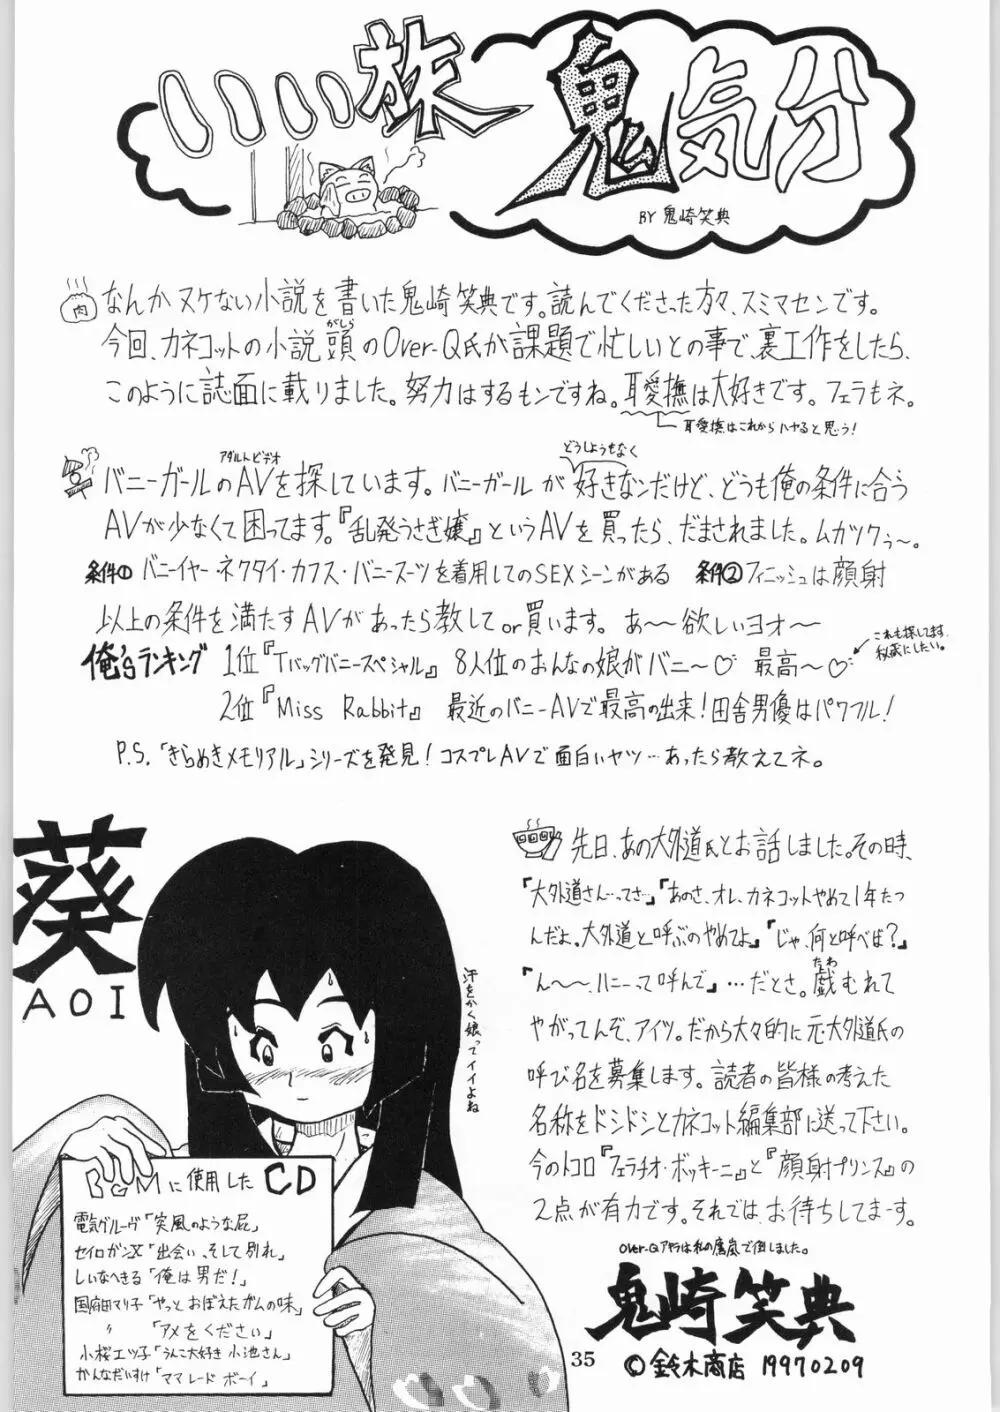 いい旅鬼気分
BY 鬼崎笑典
肉
なんかヌケない小説を書いた鬼崎笑典です。読んでくださった方々、スミマセンです。
今回、カネコットの小説頭のOver-Q氏が課題で忙しいとの事で、裏工作をしたら、
がしら
このように誌面に載りました。努力はするもンですね。耳愛撫は大好きです。フェラもネ。
耳愛撫はこれからハヤると思う!
バニーガールのAVを探しています。バニーガールが好きなンだけど、どうも俺の条件に合う
アダルトビデオ
どうしようもなく
AVが少なくて困ってます。『乱発うさぎ嬢』というAVを買ったら、だまされました。ムガツクぅ〜。
条件① バニーイヤー・ネクタイ・カフス・バニースーツを着用してのSEXシーンがある 条件② フィニッシュは顔射
以上の条件を満たすAVがあったら教して or 買います。あ〜欲しいヨオ〜
俺'sランキング 1位『Tバッグバニースペシャル』 8人位のおんなの娘がバニ〜♡ 最高〜♡
これも探してます。
秘蔵にしたい。
2位『Miss Rabbit』 最近のバニーAVで最高の出来!田舎男優はパワフル!
P.S.「きらめきメモリアル」シリーズを発見!コスプレAVで面白いヤツ…あったら教えてネ。
葵
AOI
汗をかく娘ってイイよね
BGMに使用したCD
電気グルーヴ「突風のような屁」
セイロガンX「出会い、そして別れ」
しいなへきる「俺は男だ!」
国府田マリ子「やっとおぼえたガムの味」
〃 「アメをください」
小桜エツ子「うんこ大好き小池さん」
かんなだいすけ「ママレードボーイ」
先日、あの大外道氏とお話しました。その時、
『大外道さん…てさ…』『あのさ、オレ、カネコットやめて1年たつ
んだよ。大外道と呼ぶのやめてよ。』『じゃ、何と呼べば?』
『ん〜〜、ハニーって呼んで』…だとさ。戯むれて
たわ
やがってんぞ、アイツ。だから大々的に元大外道氏の
呼び名を募集します。読者の皆様の考えた
名称をドシドシとカネコット編集部に送って下さい。
今のトコロ『フェラチオ・ボッキーニ』と『顔射プリンス』の
2点が有力です。それでは、お待ちしてまーす。
Over-Qアキラは私の鷹嵐で倒しました。
鬼崎笑典
©鈴木商店 19970209
35